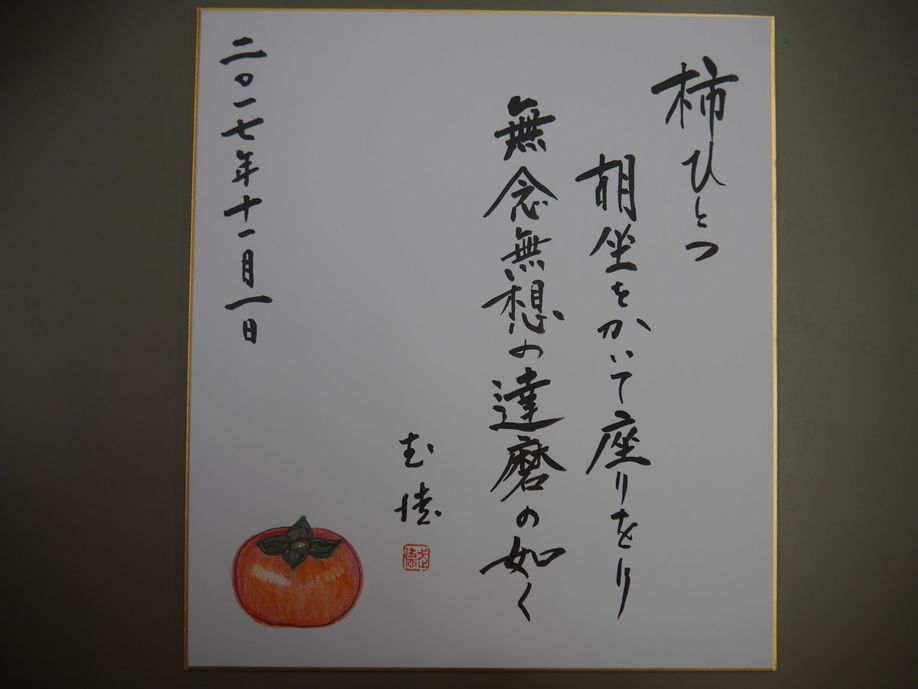 柿ひとつ
胡坐をかいて座りをり
無念無想の達磨の如く
二〇一七年十一月一日